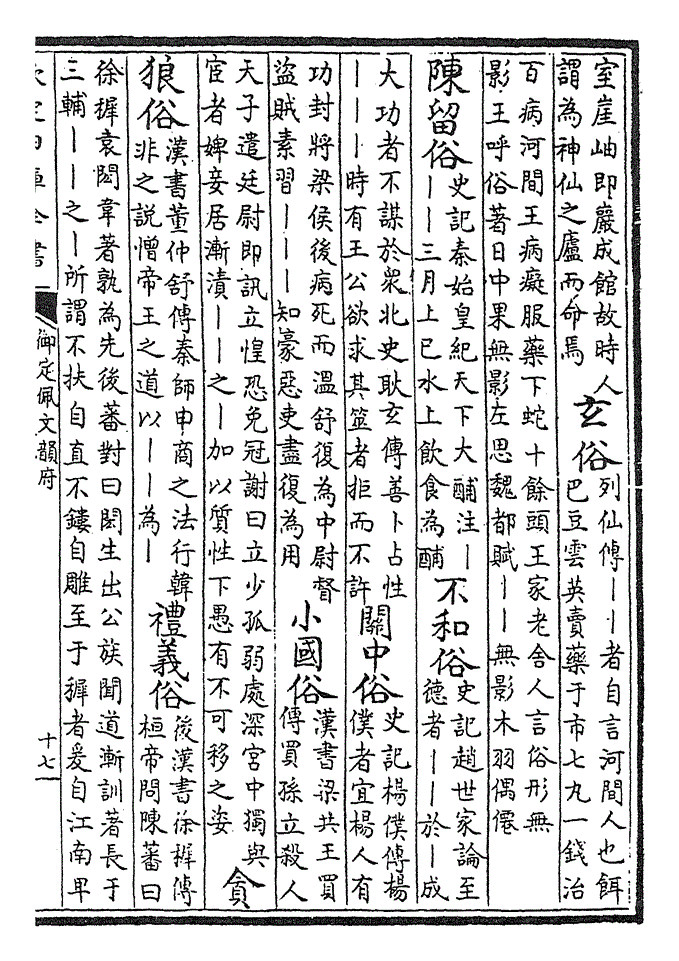 室崖岫即巖成館故時人
謂為神仙之廬而命焉
玄俗
列仙傳丨丨者自言河間人也餌
巴豆雲英賣藥于市七九一錢治
百病河間王病癡服藥下蛇十餘頭王家老舍人言俗形無
影王呼俗著日中果無影左思魏都賦丨丨無影木羽偶僊
陳留俗
史記秦始皇紀天下大酺注丨
丨丨三月上巳水上飲食為酺
不和俗
史記趙世家論至
德者丨丨於丨成
大功者不謀於衆北史耿玄傳善卜占性
丨丨丨時有王公欲求其筮者拒而不許
關中俗
史記楊僕傳楊
僕者宜楊人有
功封將梁侯後病死而溫舒復為中尉督
盜賊素習丨丨丨知豪惡吏盡復為用
小國俗
漢書梁共王買
傳買孫立殺人
天子遣廷尉即訊立惶恐免冠謝曰立少孤弱處深宮中獨與
宦者婢妾居漸漬丨丨之丨加以質性下愚有不可移之姿
貪
狼俗
漢書董仲舒傳秦師申商之法行韓
非之說憎帝王之道以丨丨為丨
禮義俗
後漢書徐穉傳
桓帝問陳蕃曰
徐穉袁閎韋著孰為先後蕃對曰閎生出公族聞道漸訓著長于
三輔丨丨之丨所謂不扶自直不鏤自雕至于穉者爰自江南卑
欽定四庫全書
御定佩文韻府
十七